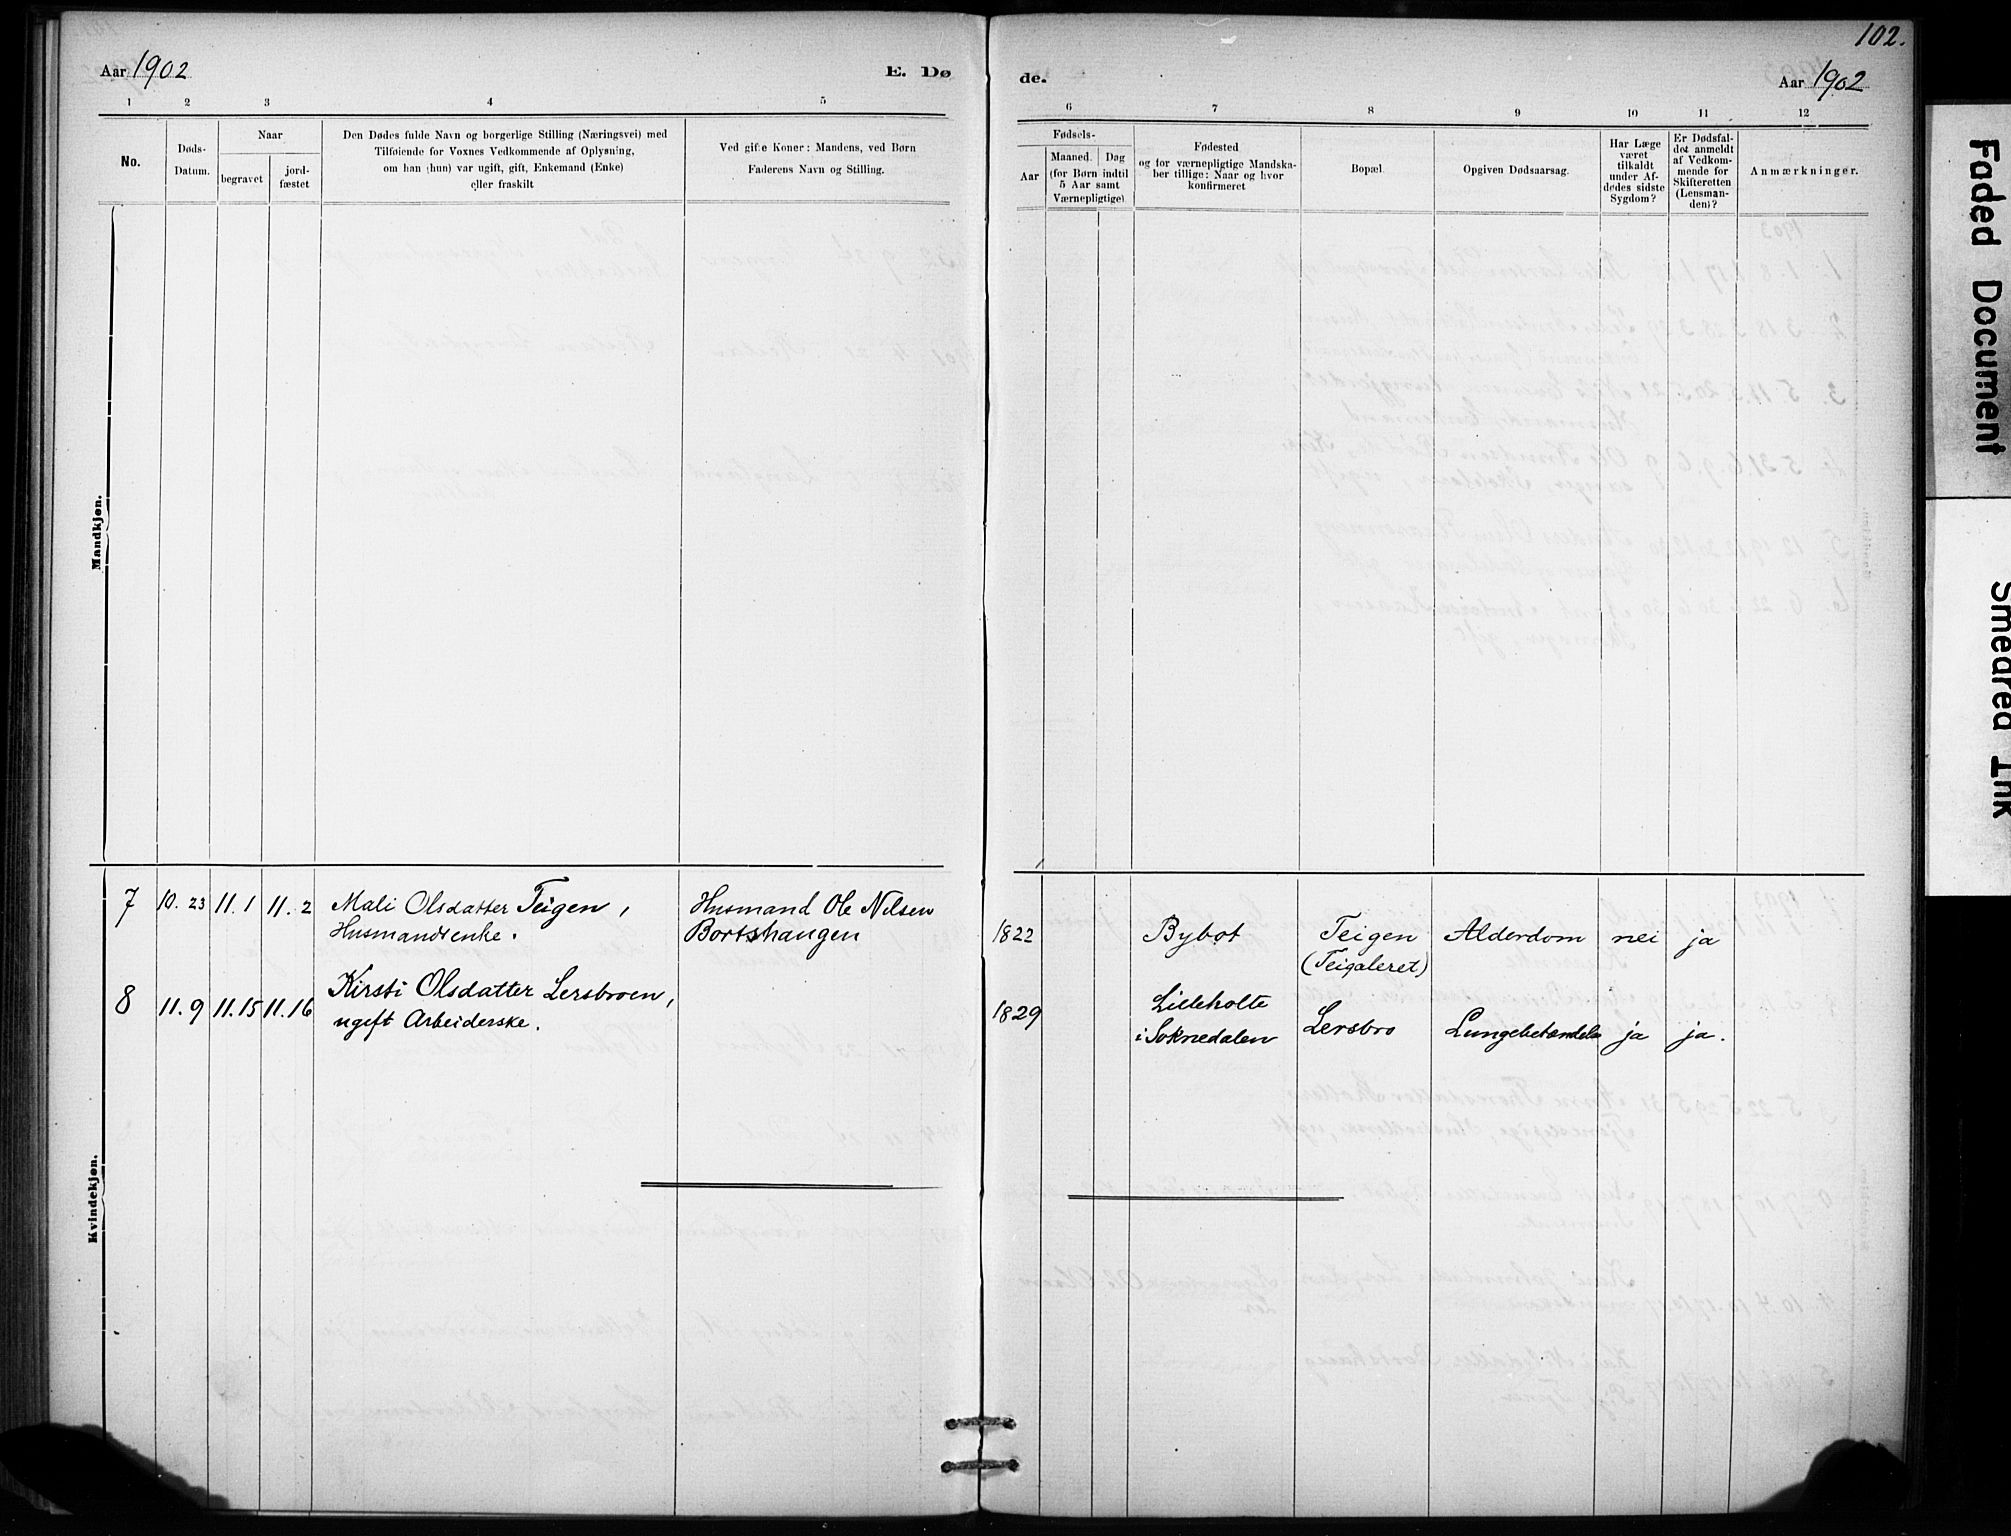 102.
Aar 1902
E. Dø
de.
Aar 1902
1 2 3 4 5
6 7 8 9 10 11 12
No.
Døds-
Datum.
Naar
begravet
jord-
fæstet
Den Dødes fulde Navn og borgerlige Stilling (Næringsvei) med
Tilføiende for Voxnes Vedkommende af Oplysning,
om han (hun) var ugift, gift, Enkemand (Enke)
eller fraskilt
Ved gifte Koner: Mandens, ved Børn
Faderens Navn og Stilling.
Fødsels-
Aar
Maaned. Dag
(for Børn indtil
5 Aar samt
Værnepligtige)
Fødested
og for værnepligtige Mandska-
ber tillige: Naar og hvor
konfirmeret
Bopæl.
Opgiven Dødsaarsag.
Har Læge
været
tilkaldt
under Af-
dødes sidste
Sygdom?
Er Dødsfal-
det anmeldt
af Vedkom-
mende for
Skifteretten
(Lensman-
den)?
Anmærkninger.
Mandkjøn.
Kvindekjøn.
7 10. 23 11. 1 11. 2 Mali Olsdatter Teigen, Husmand Ole Nilsen
Husmandsenke. Bortshaugen
1822 Bybøt Teigen Alderdom nei ja
(Teigaleret)
8 11. 9 11. 15 11. 16 Kirsti Olsdatter Lersbroen,
ugift Arbeiderske.
1829 Lilleholte
i Soknedalen Lersbro Lungebetændelse ja ja.
Faded Document
Smeared Ink